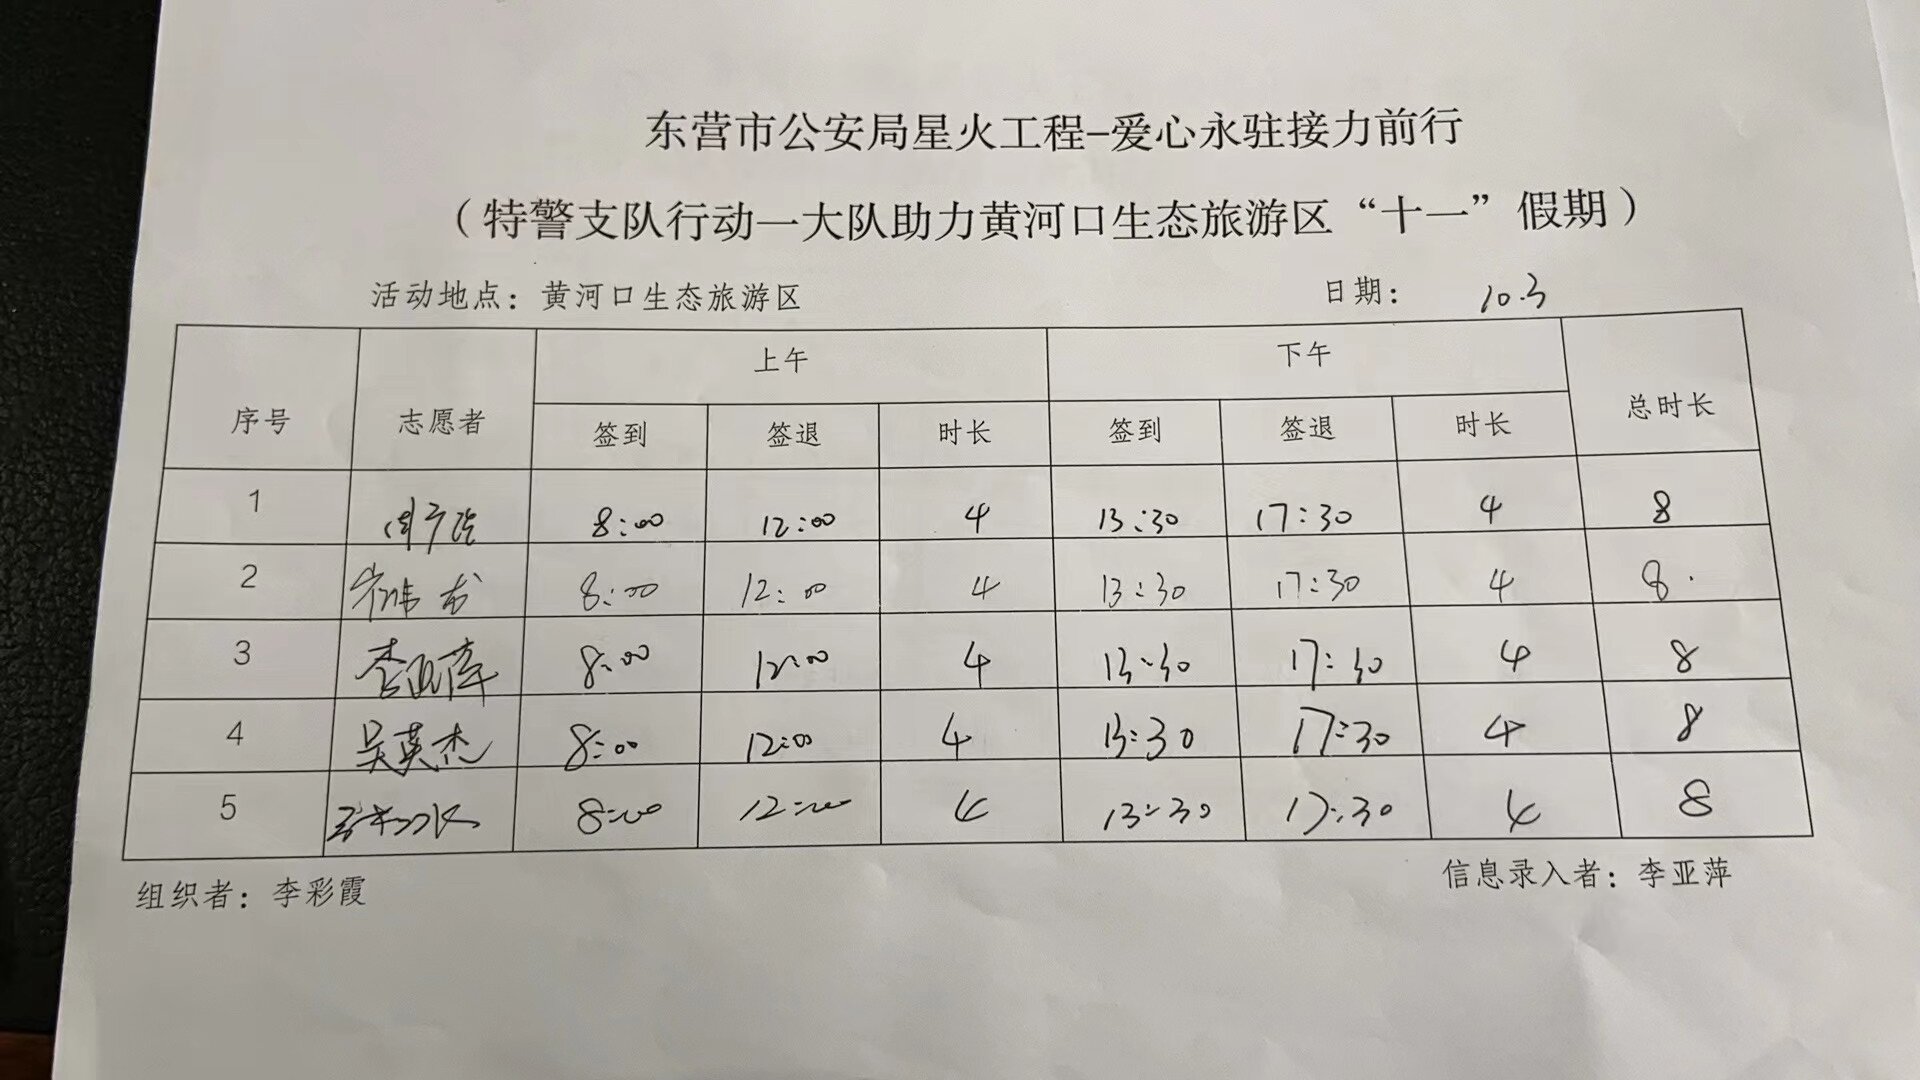 东营市公安局星火工程-爱心永驻接力前行
（特警支队行动一大队助力黄河口生态旅游区“十一”假期）
活动地点：黄河口生态旅游区 日期： 10.3
上午 下午
序号 志愿者 签到 签退 时长 签到 签退 时长 总时长
1 8:00 12:00 4 13:30 17:30 4 8
2 8:00 12:00 4 13:30 17:30 4 8.
3 8:00 12:00 4 13:30 17:30 4 8
4 吴英杰 8:00 12:00 4 13:30 17:30 4 8
5 8:00 12:00 4 13:30 17:30 4 8
组织者：李彩霞 信息录入者：李亚萍